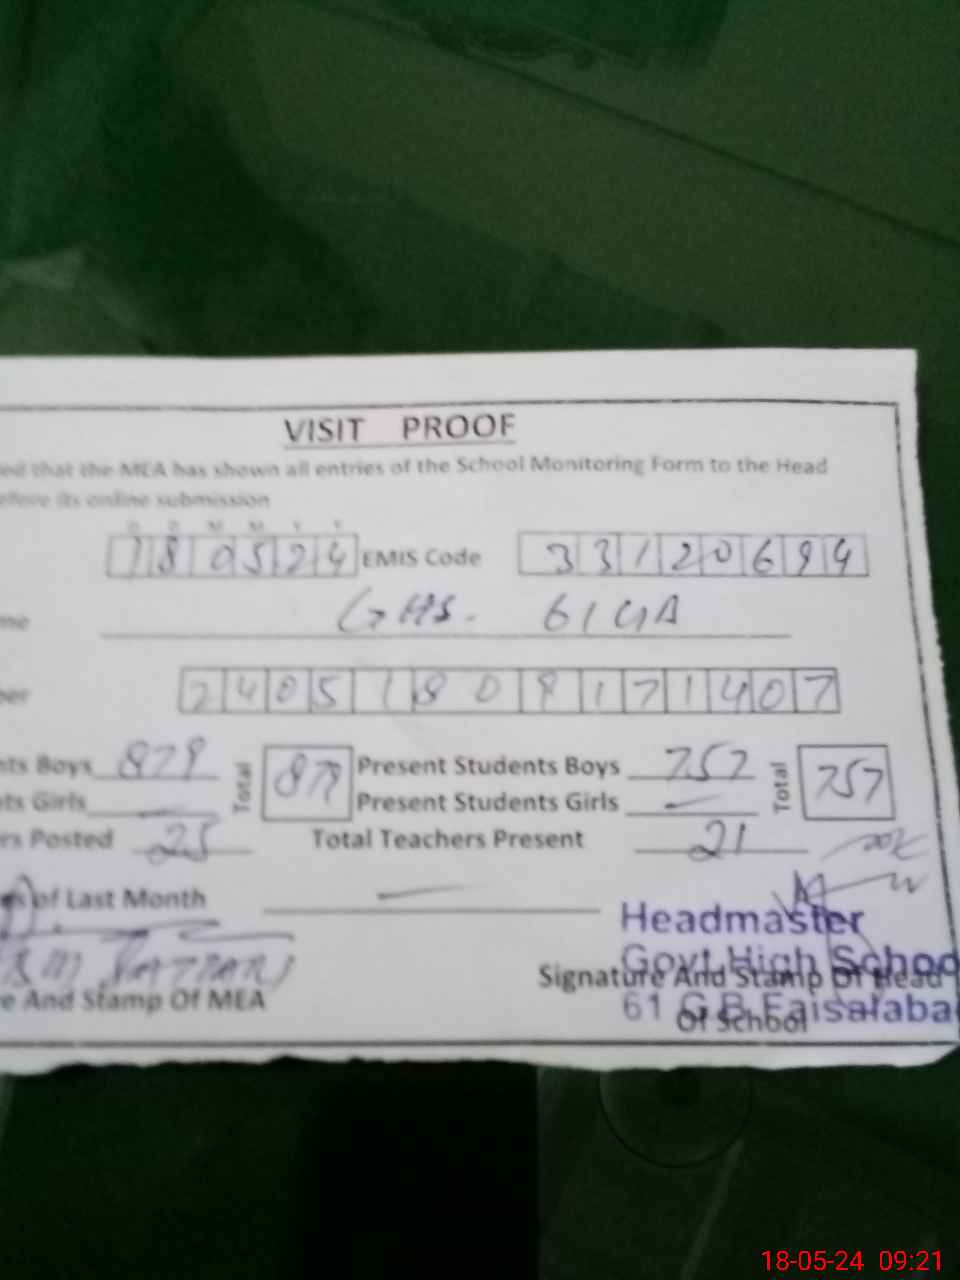 VISIT PROOF
ed that the MEA has shown all entries of the School Monitoring Form to the Head
efore its online submission
D D M M Y Y
180524 EMIS Code 33120694
me GHS. 61 GB
ber 2405180 9171407
nts Boys 879 Total 879 Present Students Boys 757 Total 757
nts Girls — Present Students Girls —
rs Posted 25 Total Teachers Present 21
of Last Month —
Headmaster
Govt High Schoo
61 G.B Faisalaba
e And Stamp Of MEA
Signature And Stamp Of Head
Of School
18-05-24 09:21